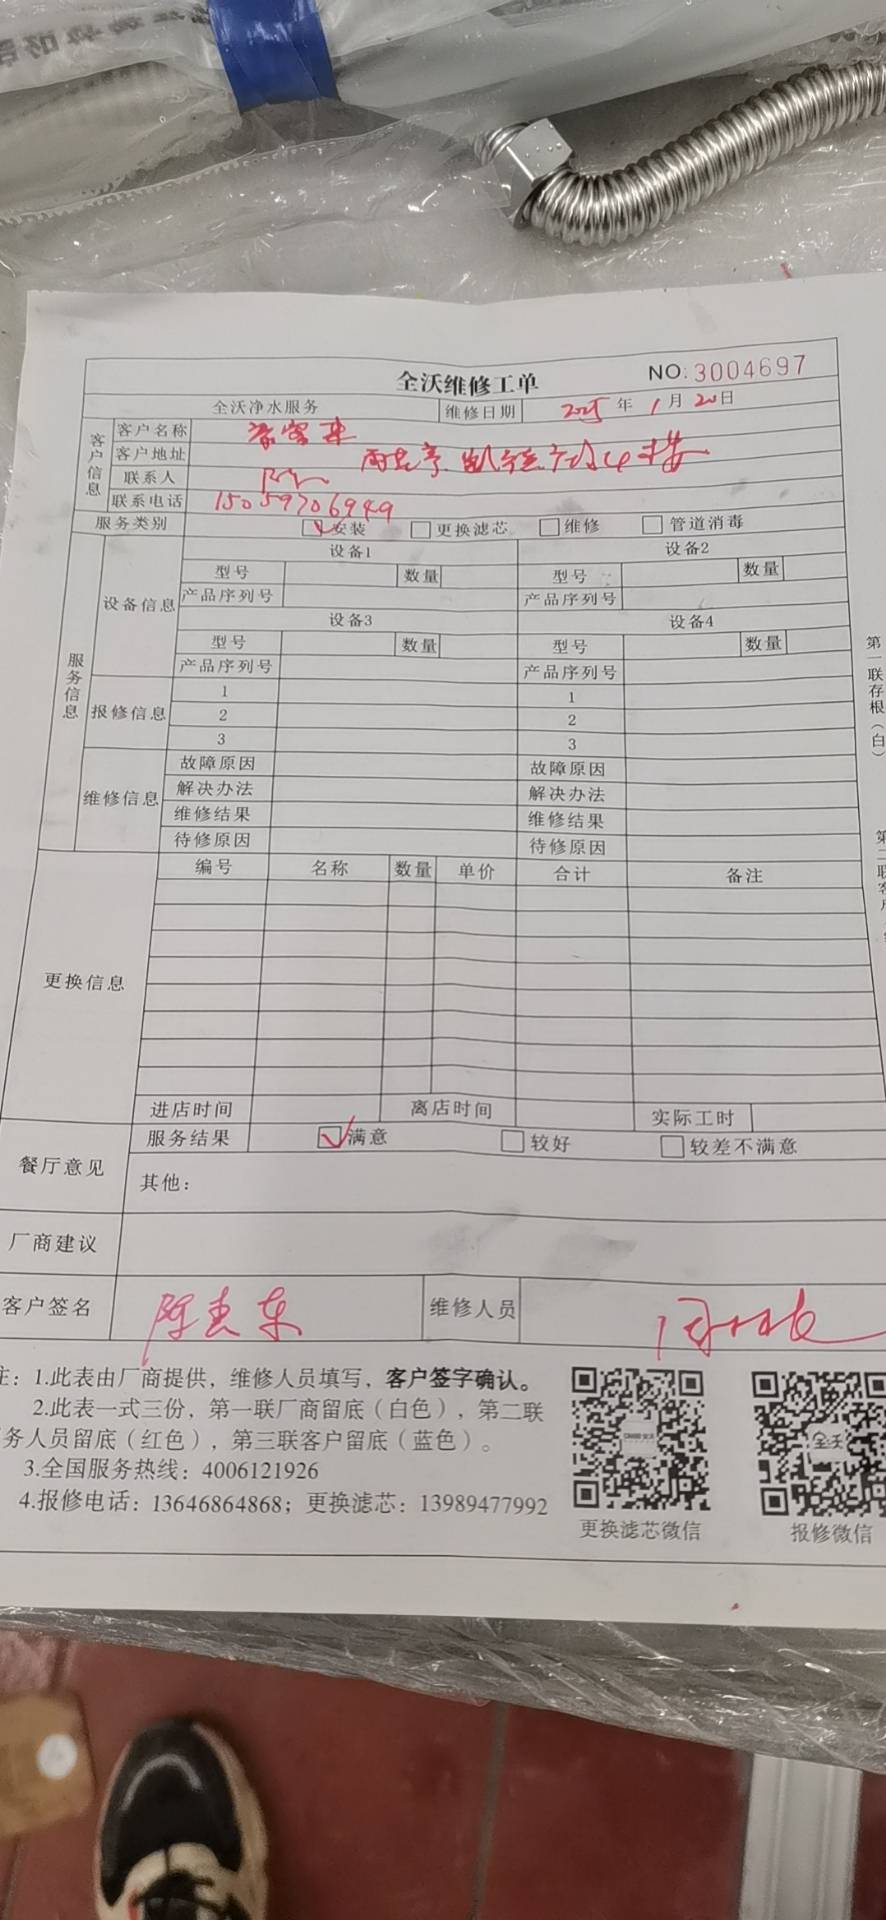 全沃维修工单
NO:3004697
全沃净水服务 维修日期 2025年1月20日
客户信息
客户名称
客户地址 4楼
联系人
联系电话 15059706949
服务类别 安装 更换滤芯 维修 管道消毒
服务信息
设备信息
设备1 设备2
型号 数量 型号 数量
产品序列号 产品序列号
设备3 设备4
型号 数量 型号 数量
产品序列号 产品序列号
报修信息
1 1
2 2
3 3
维修信息
故障原因 故障原因
解决办法 解决办法
维修结果 维修结果
待修原因 待修原因
更换信息
编号 名称 数量 单价 合计 备注
进店时间 离店时间 实际工时
餐厅意见
服务结果 满意 较好 较差不满意
其他：
厂商建议
客户签名 维修人员
注：1.此表由厂商提供，维修人员填写，客户签字确认。
2.此表一式三份，第一联厂商留底（白色），第二联
务人员留底（红色），第三联客户留底（蓝色）。
3.全国服务热线：4006121926
4.报修电话：13646864868；更换滤芯：13989477992
更换滤芯微信 报修微信
第一联存根（白）